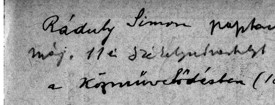 Ráduly Simon paptan
máj. 11 é Székelyudvarhelyt
a Közművelődésben (1